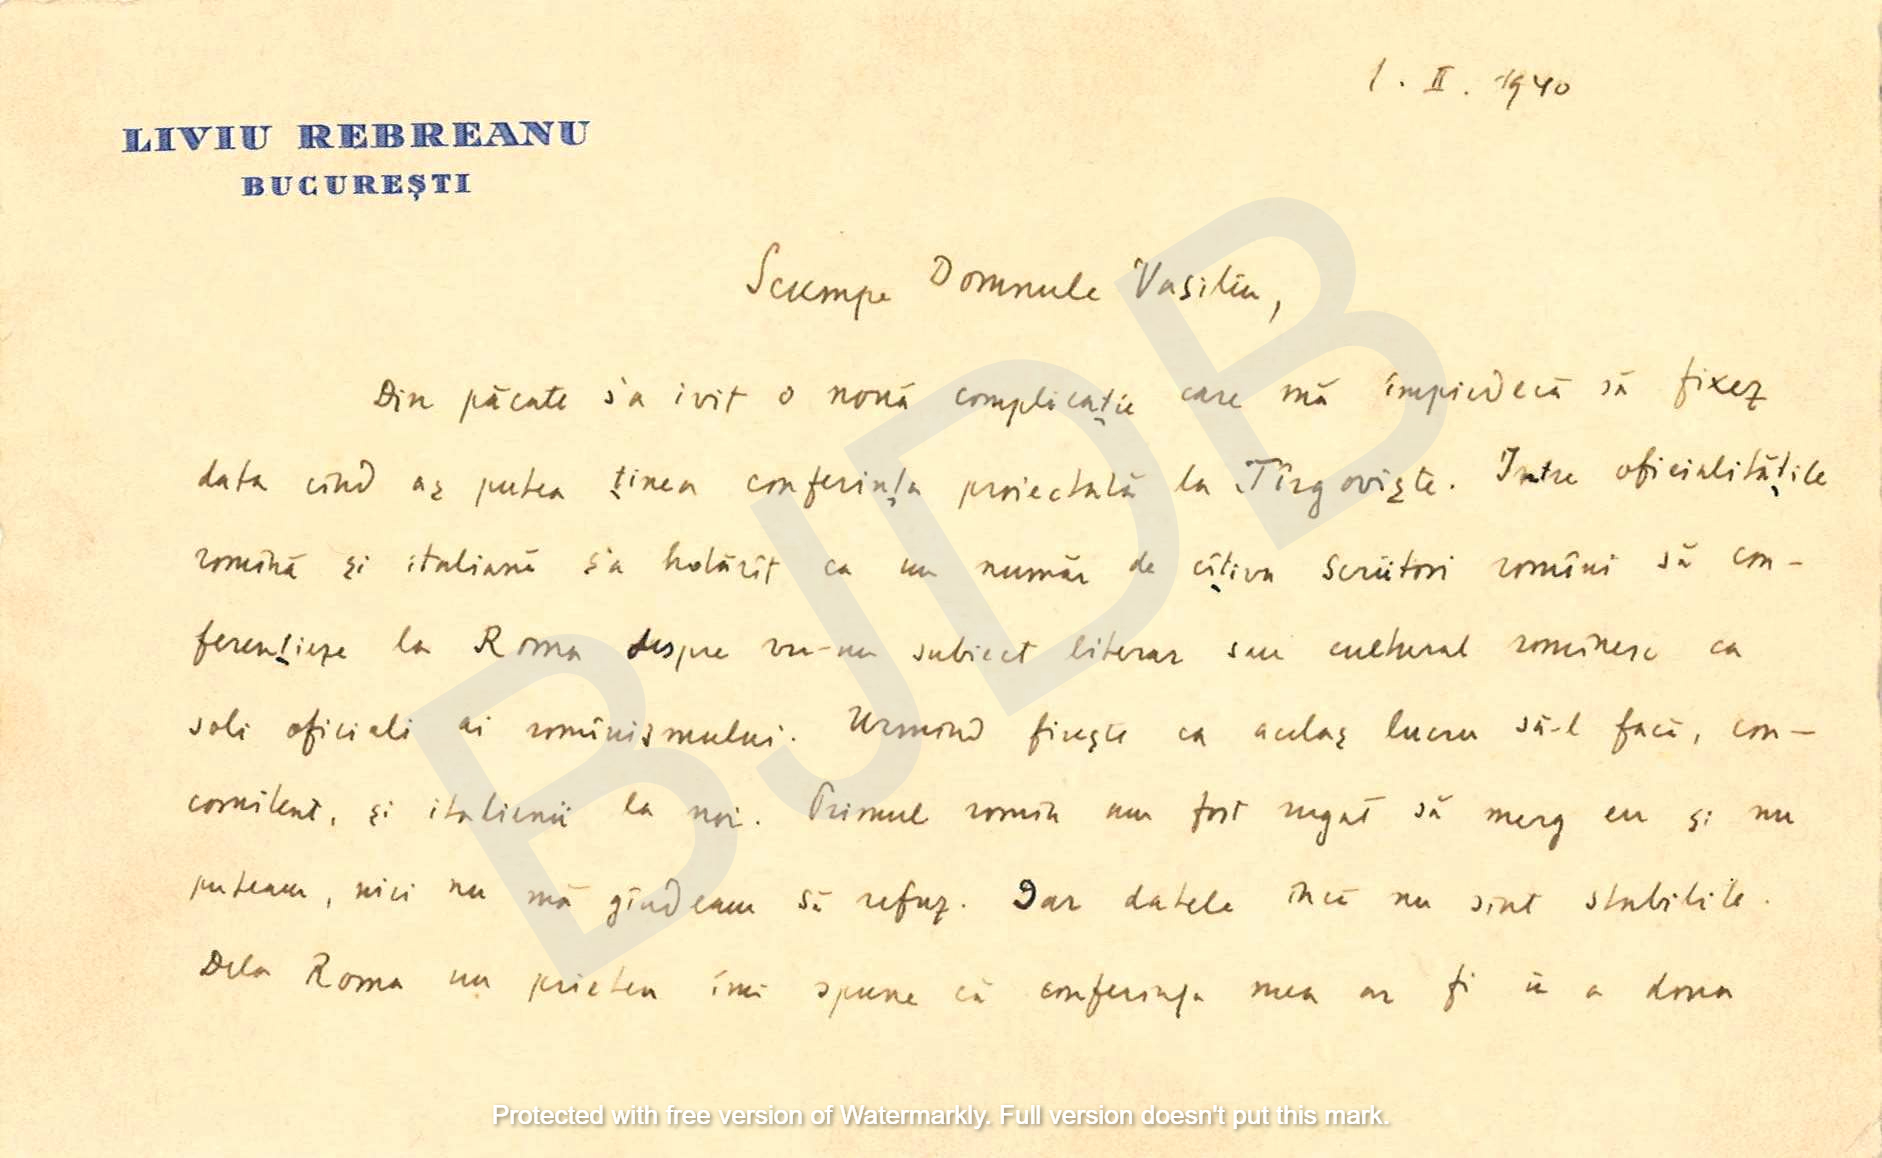 1. II. 1940
LIVIU REBREANU
BUCUREȘTI
Scumpe Domnule Vasiliu,
Din păcate s'a ivit o nouă complicație care mă împiedecă să fixez
data cînd aș putea ținea conferința proiectată la Tîrgoviște. Intre oficialitățile
romînă și italiană s'a hotărît ca un număr de cîțiva scriitori romîni să con-
ferențieze la Roma despre vre-un subiect literar sau cultural romînesc ca
soli oficiali ai romînismului. Urmînd firește ca acelaș lucru să-l facă, con-
comitent, și italienii la noi. Primul romîn am fost rugat să merg eu și nu
puteam, nici nu mă gîndeam să refuz. Dar datele încă nu sînt stabilite.
Dela Roma un prieten îmi spune că conferința mea ar fi în a doua
BJDB
Protected with free version of Watermarkly. Full version doesn't put this mark.